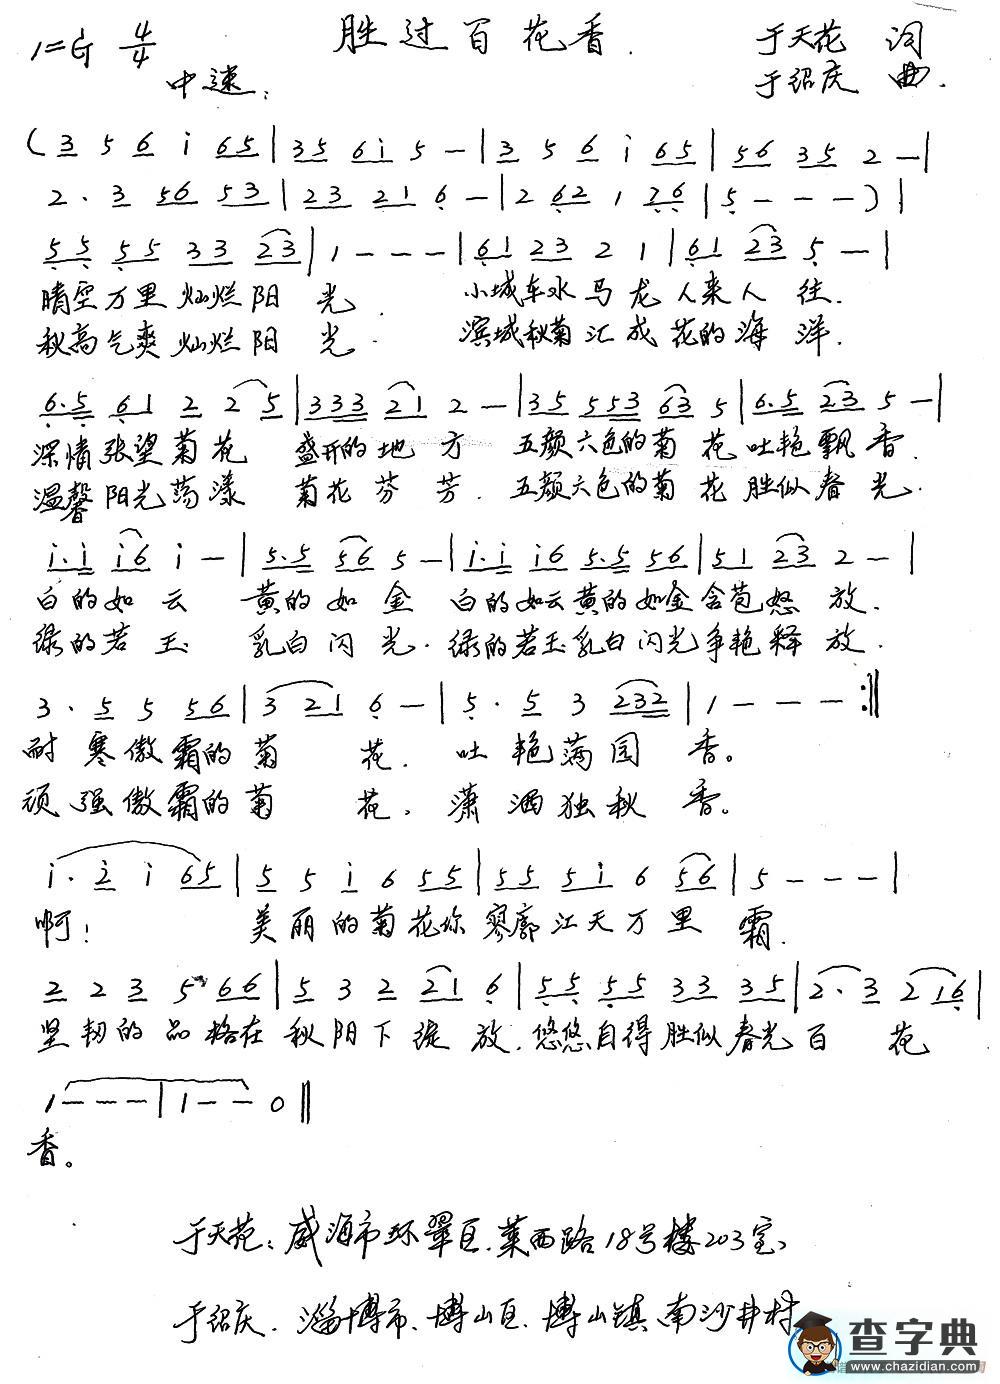 胜过百花香.
1=G 4/4 于天花 词
中速: 于绍庆 曲.
(3 5 6 i 65|35 6i 5 —|3 5 6 i 65|56 35 2 —|
2 . 3 56 53|23 21 6 —|2 62 1 76|5 — — —)|
55 55 33 23|1 — — —|61 23 2 1|61 23 5 —|
晴空万里灿烂阳光. 小城车水马龙人来人往.
秋高气爽灿烂阳光. 滨城秋菊汇成花的海洋.
6.5 61 2 2 5|333 21 2 —|35 553 63 5|6.5 23 5 —|
深情张望菊花 盛开的地方 五颜六色的菊花吐艳飘香.
温馨阳光荡漾 菊花芬芳. 五颜六色的菊花胜似春光.
i.i i6 i —|5.5 56 5 —|i.i i6 5.5 56|51 23 2 —|
白的如云 黄的如金 白的如云黄的如金含苞怒放.
绿的若玉 乳白闪光. 绿的若玉乳白闪光争艳释放.
3 . 5 5 56|3 21 6 —|5 . 5 3 232|1 — — — :‖
耐寒傲霜的菊花. 吐艳满园香。
顽强傲霜的菊花. 潇洒独秋香。
i . 2 i 65|5 5 i 6 55|55 5i 6 56|5 — — —|
啊! 美丽的菊花你寥廓江天万里霜.
2 2 3 5 66|5 3 2 21 6|55 55 33 35|2 . 3 2 16|
坚韧的品格在秋阳下绽放. 悠悠自得胜似春光百花
1 — — —|1 — — 0‖
香。
于天花: 威海市环翠区.莱西路18号楼203室、
于绍庆. 淄博市、博山区.博山镇南沙井村
查字典
www.chazidian.com